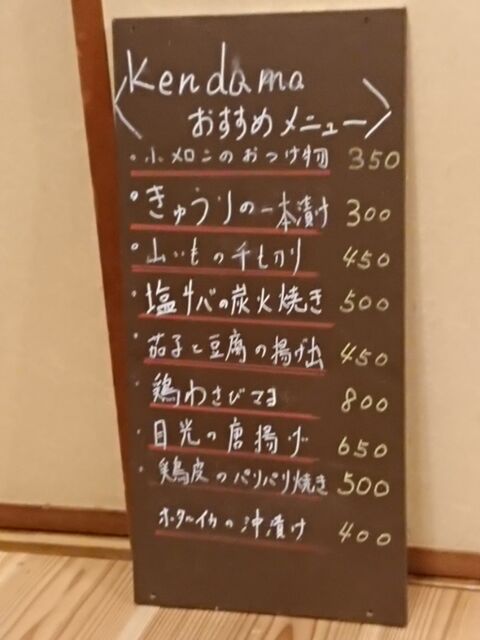 Kendama
おすすめメニュー
・小メロンのおつけ物 350
・きゅうりの一本漬け 300
・山いもの千切り 450
・塩サバの炭火焼き 500
・茄子と豆腐の揚げ出 450
鶏わさび 800
・目光の唐揚げ 650
・鶏皮のパリパリ焼き 500
ホタルイカの沖漬け 400